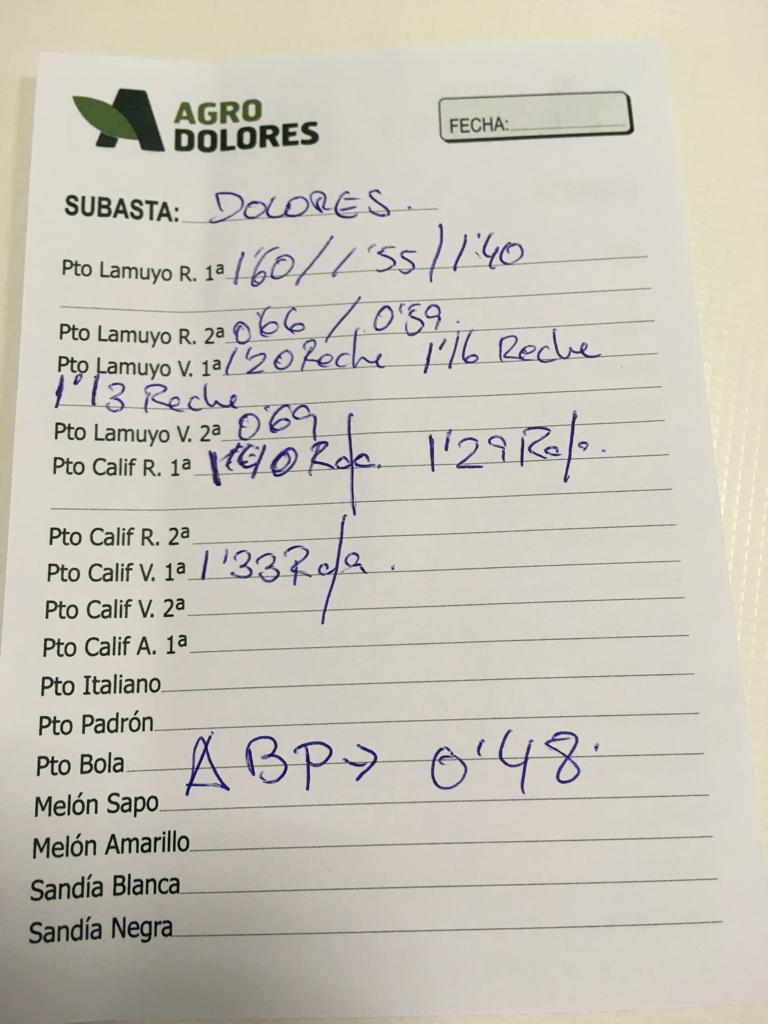 AGRO
DOLORES
FECHA:
SUBASTA: DOLORES.
Pto Lamuyo R. 1ª 1'60 / 1'55 / 1'40
Pto Lamuyo R. 2ª 0'66 / 0'59.
Pto Lamuyo V. 1ª 1'20 Reche 1'16 Reche
1'13 Reche
Pto Lamuyo V. 2ª 0'69
Pto Calif R. 1ª 1'40 Roja. 1'29 Roja.
Pto Calif R. 2ª
Pto Calif V. 1ª 1'33 Roja.
Pto Calif V. 2ª
Pto Calif A. 1ª
Pto Italiano
Pto Padrón
Pto Bola ABP → 0'48.
Melón Sapo
Melón Amarillo
Sandía Blanca
Sandía Negra